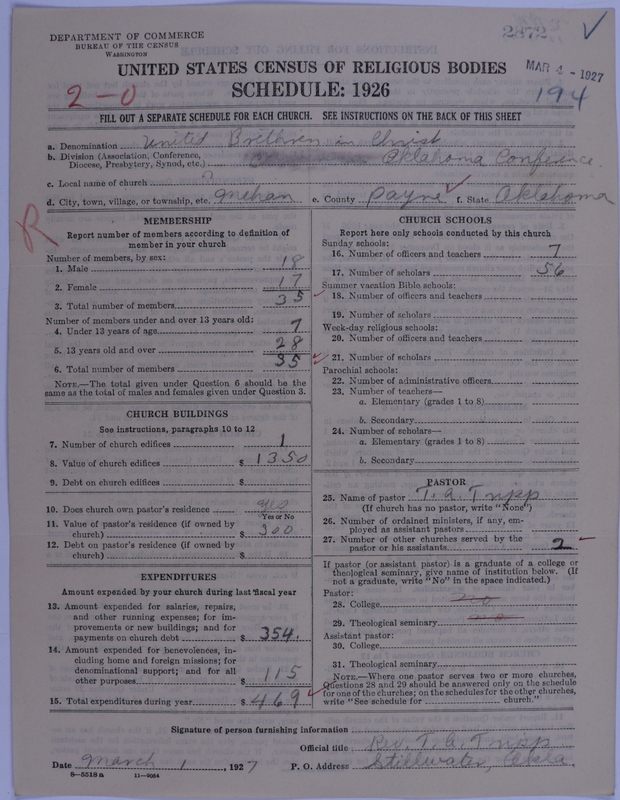 DEPARTMENT OF COMMERCE
BUREAU OF THE CENSUS
WASHINGTON
2872
UNITED STATES CENSUS OF RELIGIOUS BODIES
MAR 4 - 1927
SCHEDULE: 1926
2-0
194
FILL OUT A SEPARATE SCHEDULE FOR EACH CHURCH. SEE INSTRUCTIONS ON THE BACK OF THIS SHEET
a. Denomination United Brethren in Christ
b. Division (Association, Conference,
Diocese, Presbytery, Synod, etc.) Oklahoma Conference
c. Local name of church
d. City, town, village, or township, etc. Mehan e. County Payne f. State Oklahoma
R
MEMBERSHIP
Report number of members according to definition of
member in your church
Number of members, by sex:
1. Male 18
2. Female 17
3. Total number of members 35
Number of members under and over 13 years old:
4. Under 13 years of age 7
5. 13 years old and over 28
6. Total number of members 35
NOTE.—The total given under Question 6 should be the
same as the total of males and females given under Question 3.
CHURCH BUILDINGS
See instructions, paragraphs 10 to 12
7. Number of church edifices 1
8. Value of church edifices $ 1350
9. Debt on church edifices $
10. Does church own pastor's residence yes
Yes or No
11. Value of pastor's residence (if owned by
church) $ 300
12. Debt on pastor's residence (if owned by
church) $
EXPENDITURES
Amount expended by your church during last fiscal year
13. Amount expended for salaries, repairs,
and other running expenses; for im-
provements or new buildings; and for
payments on church debt $ 354.
14. Amount expended for benevolences, in-
cluding home and foreign missions; for
denominational support; and for all
other purposes $ 115
15. Total expenditures during year $ 469
CHURCH SCHOOLS
Report here only schools conducted by this church
Sunday schools:
16. Number of officers and teachers 7
17. Number of scholars 56
Summer vacation Bible schools:
18. Number of officers and teachers
19. Number of scholars
Week-day religious schools:
20. Number of officers and teachers
21. Number of scholars
Parochial schools:
22. Number of administrative officers
23. Number of teachers—
a. Elementary (grades 1 to 8)
b. Secondary
24. Number of scholars—
a. Elementary (grades 1 to 8)
b. Secondary
PASTOR
25. Name of pastor T. A. Tripp
(If church has no pastor, write "None")
26. Number of ordained ministers, if any, em-
ployed as assistant pastors
27. Number of other churches served by the
pastor or his assistants 2
If pastor (or assistant pastor) is a graduate of a college or
theological seminary, give name of institution below. (If
not a graduate, write "No" in the space indicated.)
Pastor:
28. College no
29. Theological seminary no
Assistant pastor:
30. College
31. Theological seminary
NOTE.—Where one pastor serves two or more churches,
Questions 28 and 29 should be answered only on the schedule
for one of the churches; on the schedules for the other churches,
write "See schedule for church."
Signature of person furnishing information
Official title Rev. T. A. Tripp
Date March 1, 1927 P. O. Address Stillwater, Okla.
8—5518 a 11—9064